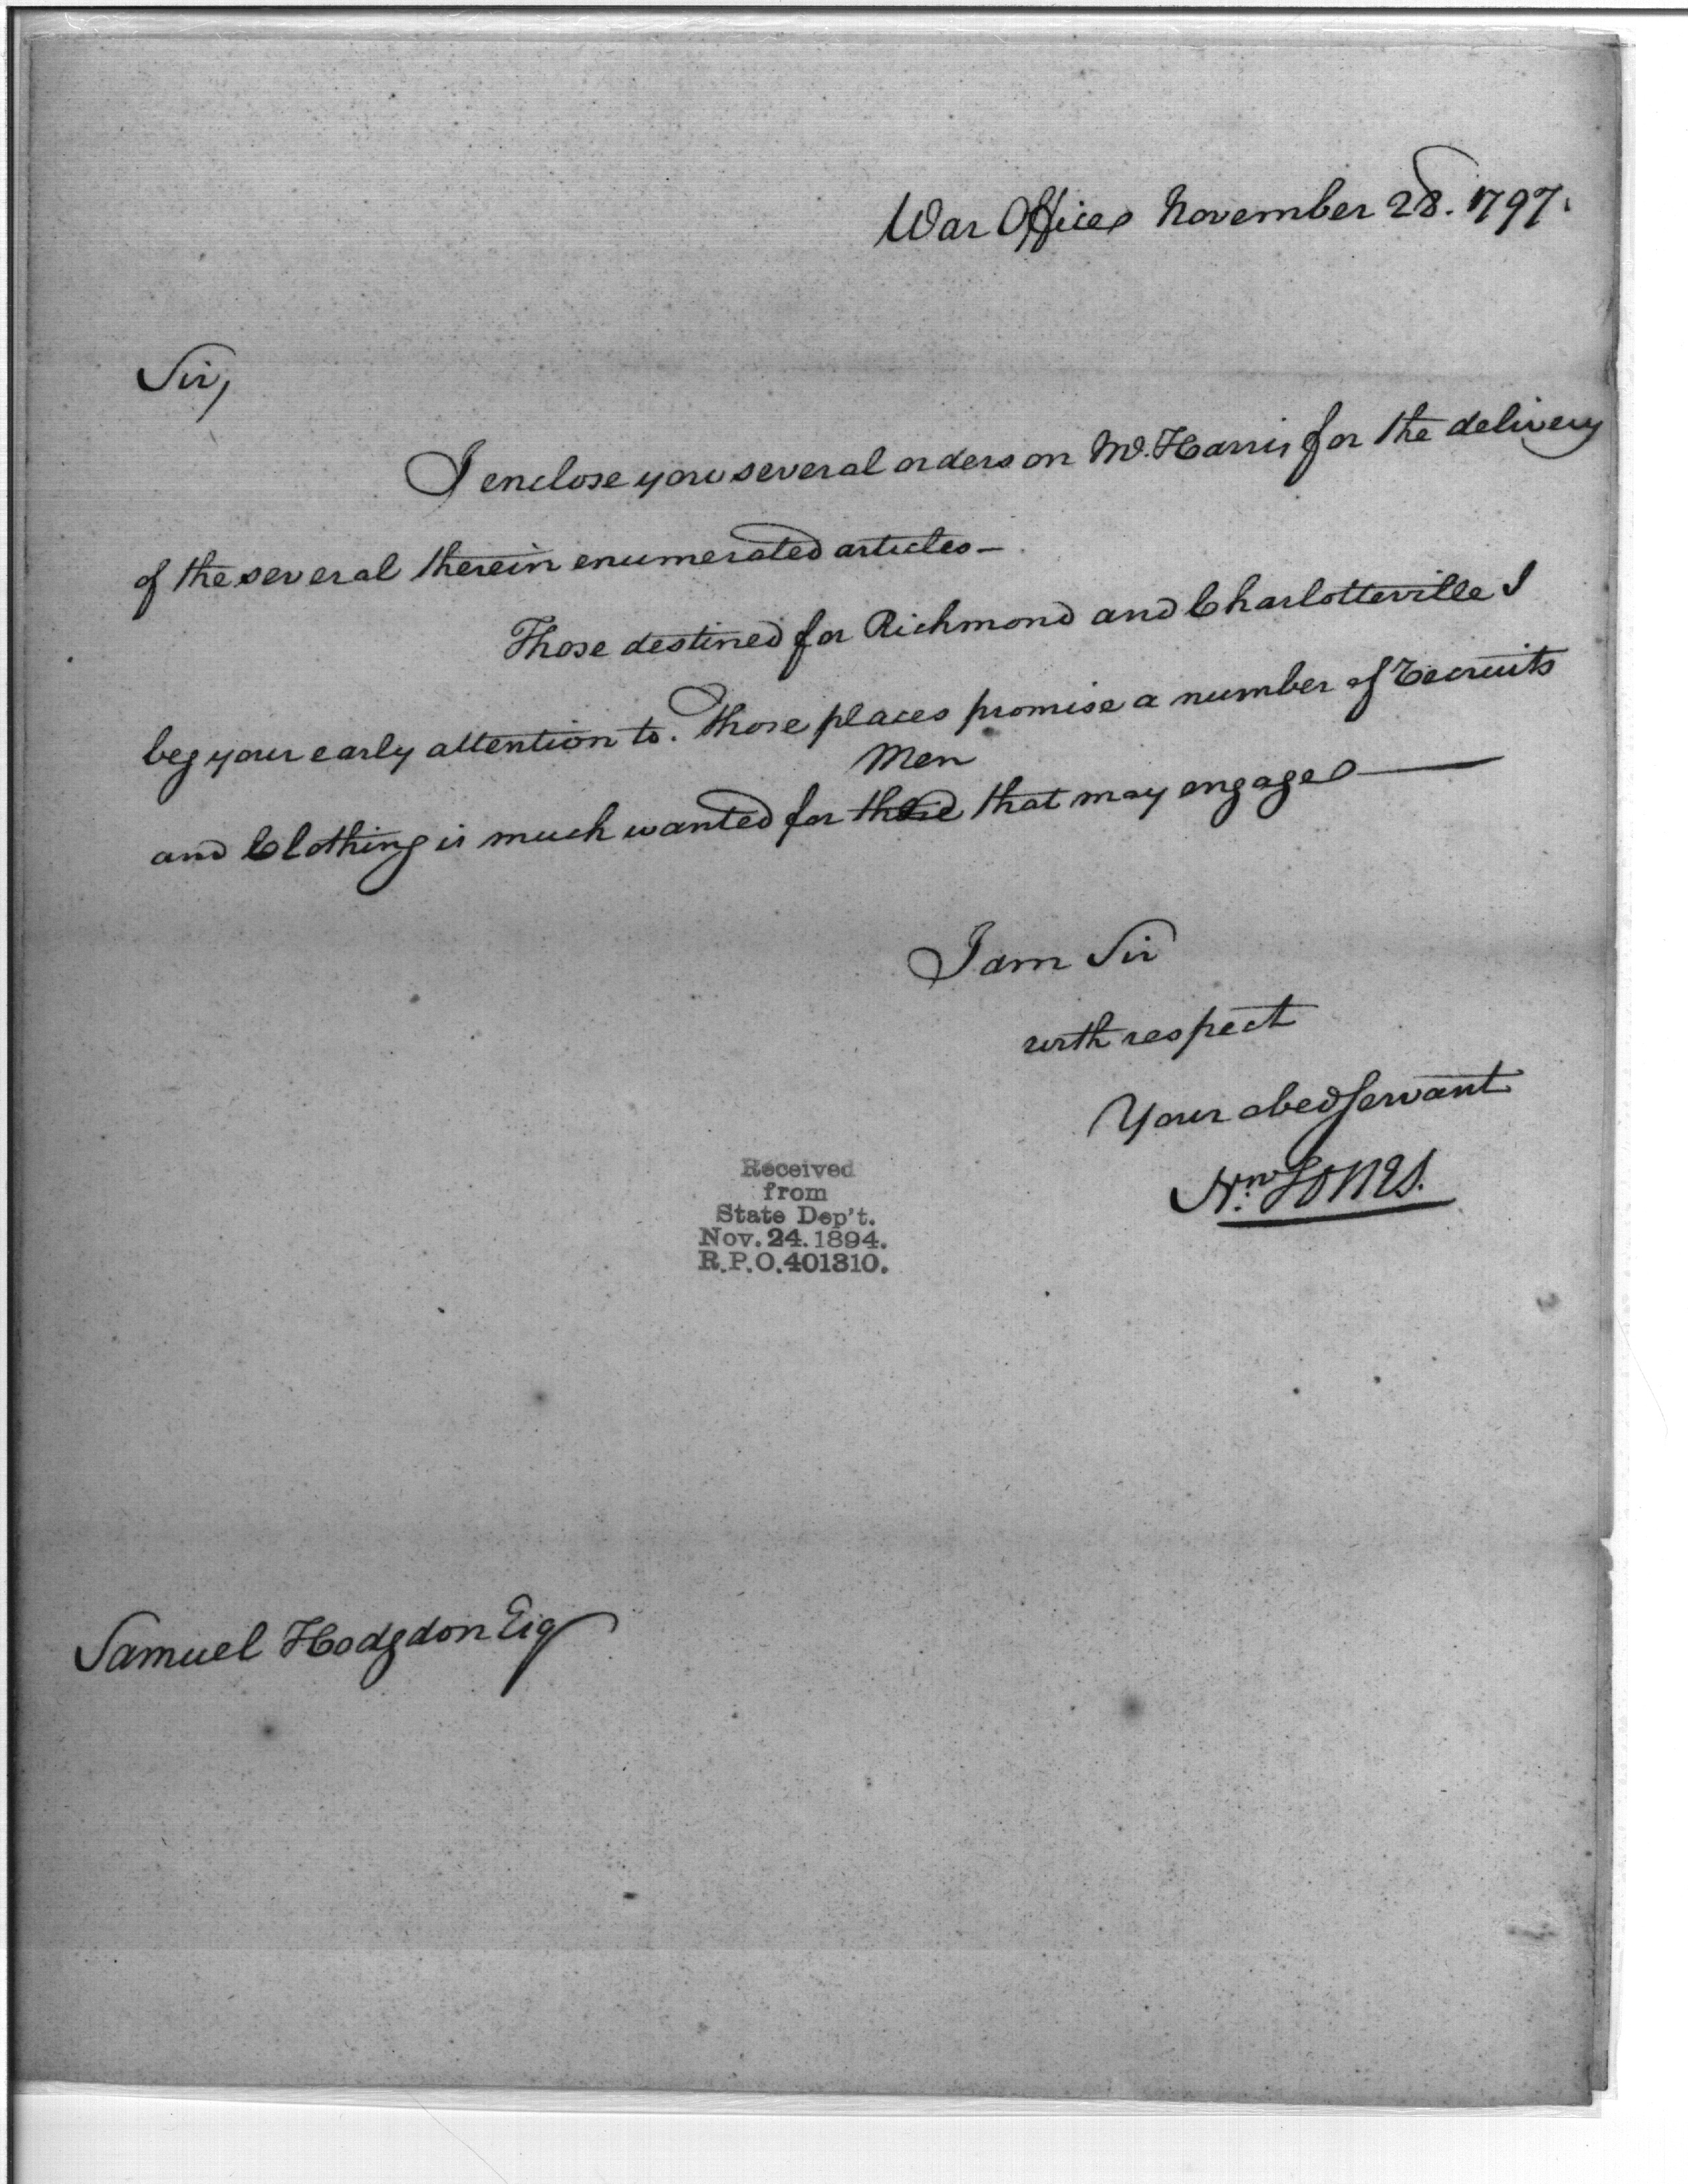 War Office November 28. 1797.
Sir,
I enclose you several orders on Mr. Harris for the delivery
of the several therein enumerated articles—
Those destined for Richmond and Charlotteville I
beg your early attention to. Those places promise a number of Recruits
Men
and Clothing is much wanted for those that may engage —
I am Sir
with respect
Your obed Servant
Wm Jones.
Received
from
State Dep't.
Nov. 24. 1894.
R.P.O. 401310.
Samuel Hodgdon Esq